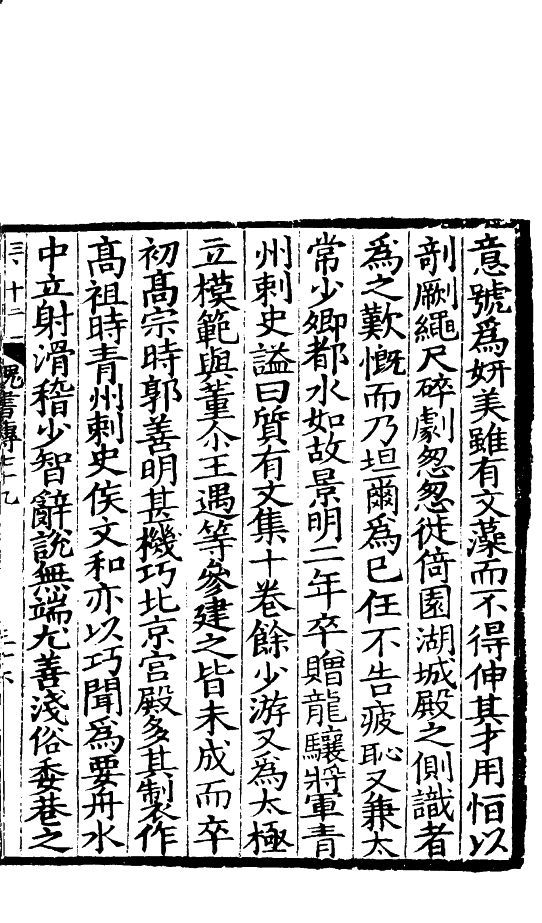 意號爲妍美雖有文藻而不得伸其才用恒以
剞劂繩尺碎劇怱怱徙倚園湖城殿之側識者
爲之歎慨而乃坦爾爲已任不告疲恥又兼太
常少卿都水如故景明二年卒贈龍驤將軍青
州刺史謚曰質有文集十卷餘少游又爲太極
立模範與董尒王遇等參建之皆未成而卒
初髙宗時郭善明甚機巧北京宫殿多其製作
髙祖時青州刺史侯文和亦以巧聞爲要舟水
中立射滑稽少智辭說無端尤善淺俗委巷之
三、十二
魏書傳七十九